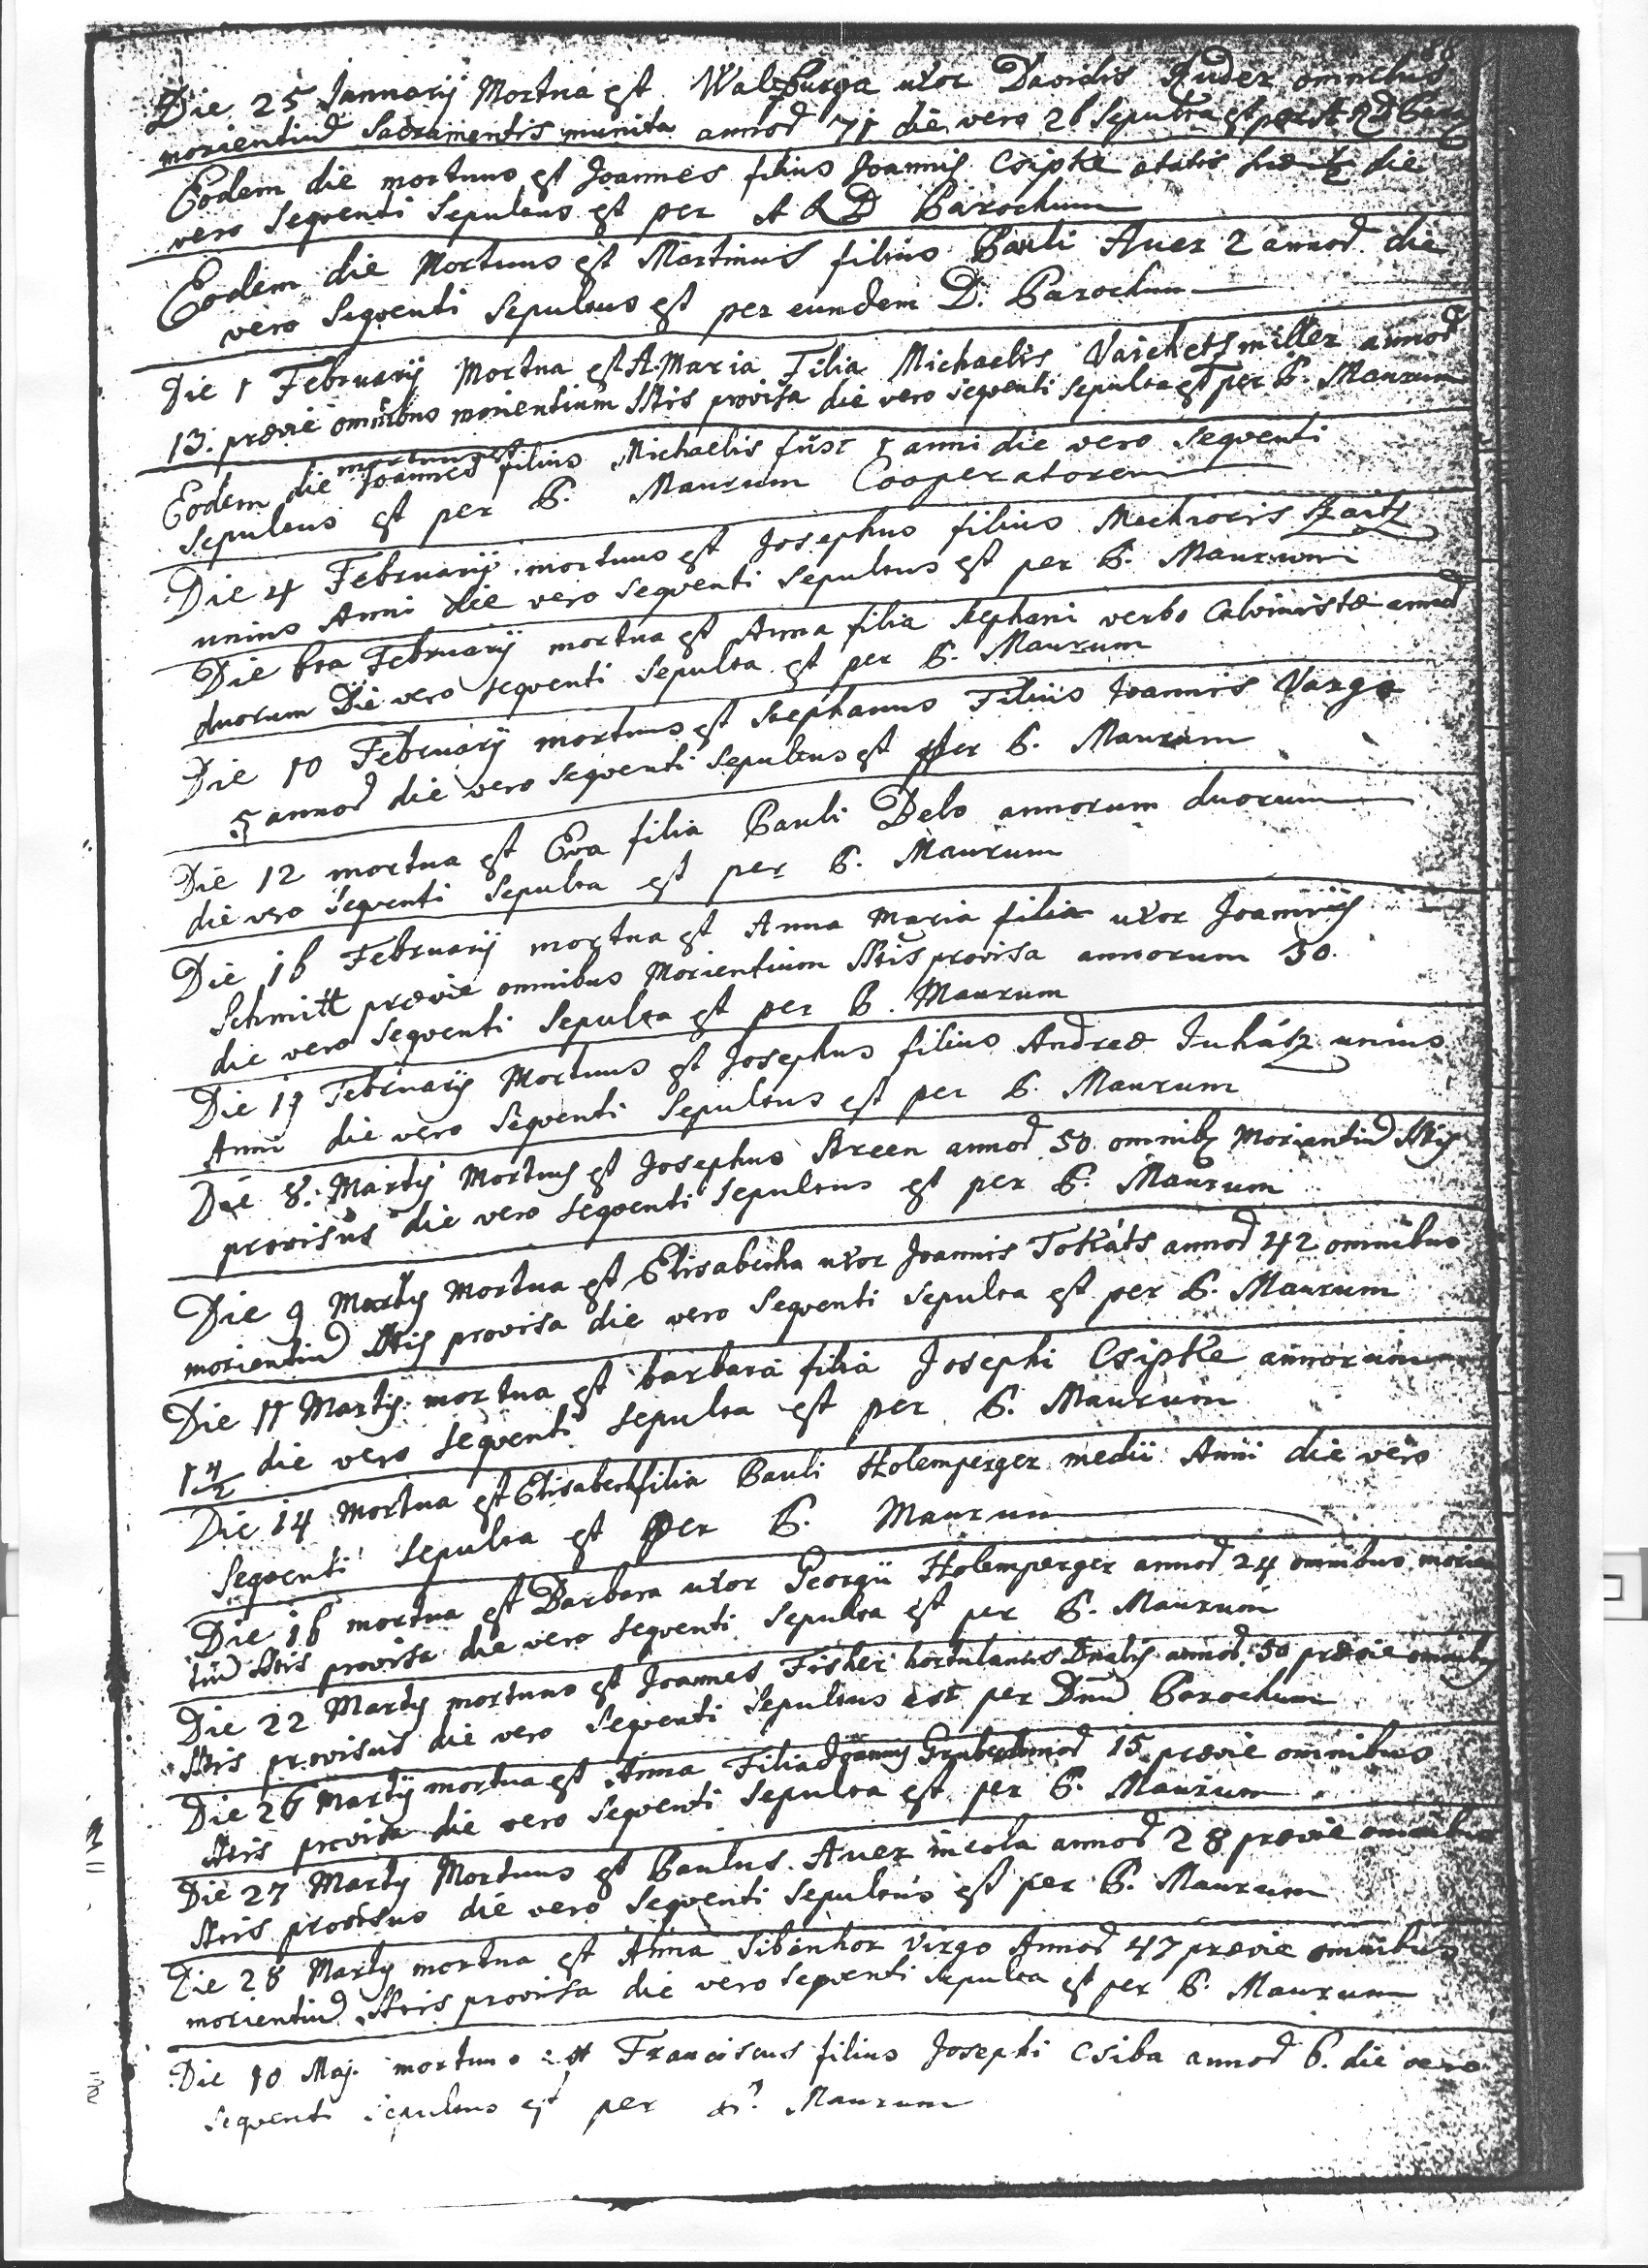 Die 25 Januarÿ Mortua est Walburga uxor Davidis Auder omnibus
morientiũ Sacramentis munita annoꝝ 71 die vero 26 Sepulta est per A R D Paroc
Eodem die mortuus est Joannes filius Joannis Csipke etatis die
vero Seqventi Sepultus est per A R D Parochum
Eodem die Mortuus est Martinus filius Pauli Auer 2 annoꝝ die
vero Seqventi Sepultus est per eundem D. Parochum
Die 1 Februarÿ Mortua est A. Maria Filia Michaelis Vaichetsmiller annoꝝ
13. prævie omnibus morientium SStis provisa die vero seqventi sepulta est per P. Maurum
Eodem die mortuus est Joannes filius Michaelis füst 1 anni die vero Seqventi
Sepultus est per P. Maurum Cooperatorem
Die 4 Februarÿ mortuus est Josephus filius Mechioris Szaitz
unius Anni die vero seqventi sepultus est per P. Maurum
Die 6ta Februarÿ mortua est Anna filia Stephani verbo Calvinistæ annoꝝ
duorum Die vero seqventi sepulta est per P. Maurum
Die 10 Februarÿ mortuus est Stephanus Filius Joannis Varga
5 annoꝝ die vero seqventi sepultus est per P. Maurum
Die 12 mortua est Eva filia Pauli Delo annorum duorum
die vro seqventi sepulta est per P. Maurum
Die 16 Februarÿ mortua est Anna Maria filia uxor Joannis
Schmitt prævie omnibus Morientium SStis provisa annorum 50.
die vero seqventi Sepulta est per P. Maurum
Die 19 Februarÿ Mortuus est Josephus filius Andreæ Juhász unius
Anni die vero Seqventi Sepultus est per P. Maurum
Die 8. Martÿ Mortuus est Josephus Streen annoꝝ 50 omnibꝫ Morientiũ SStis
provisus die vero seqventi sepultus est per P. Maurum
Die 9 Martÿ Mortua est Elisabetha uxor Joannis Tokáts annoꝝ 42 omnibus
morientiũ SStis provisa die vero Seqventi sepulta est per P. Maurum
Die 11 Martÿ mortua est barbara filia Josephi Csipke annorum
1 1/2 die vero seqventi sepulta est per P. Maurum
Die 14 Mortua est Elisabeth filia Pauli Holemperger medii Anni die vero
Seqventi Sepulta est per P. Maurum
Die 16 mortua est Barbara uxor Georgii Holemperger annoꝝ 24 omnibus morien
tiũ SStis provisa die vero seqventi sepulta est per P. Maurum
Die 22 Martÿ mortuus est Joannes Fisher hortulanus Dnalis annoꝝ 50 prævie omnibꝫ
SStis provisus die vero Seqventi Sepultus est per Dnũ Parochum
Die 26 Martÿ mortua est Anna Filia Joannis Gruber annoꝝ 15 prævie omnibus
SStis provisa die vero seqventi sepulta est per P. Maurum
Die 27 Martÿ Mortuus est Paulus Auer incola annoꝝ 28 prævie omnibus
SStis provisus die vero Seqventi Sepultus est per P. Maurum
Die 28 Martÿ mortua est Anna Sibenhor Virgo Annoꝝ 47 prævie omnibus
morientiũ SStis provisa die vero seqventi sepulta est per P. Maurum
Die 10 Maj. mortuus est Franciscus filius Josephi Csiba annoꝝ 6. die vero
seqventi sepultus est per P. Maurum